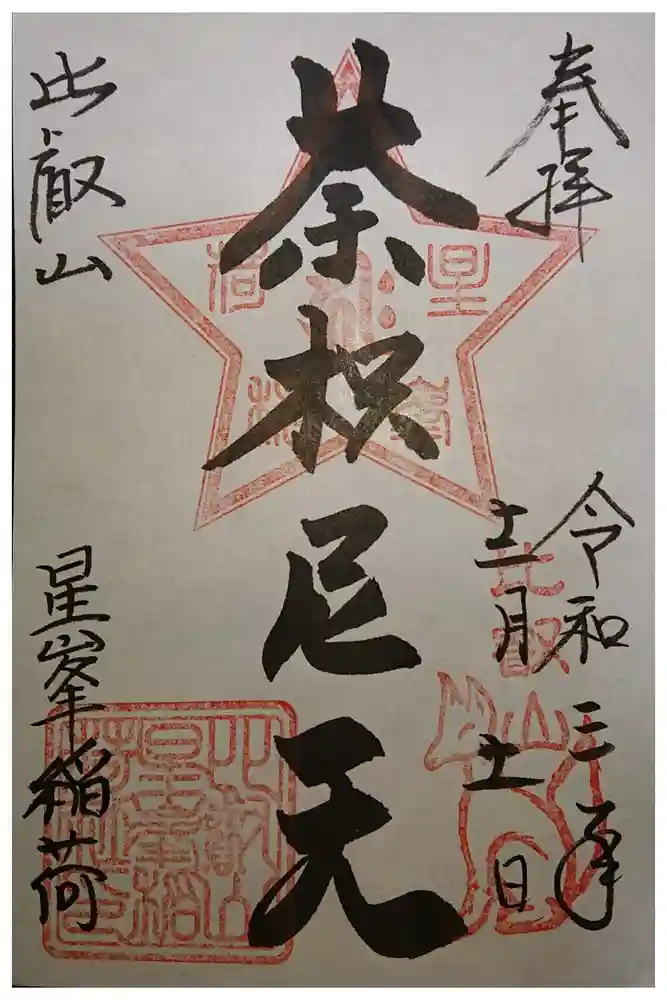 奉拝
令和三年
十二月十一日
荼枳尼天
比叡山
星峯稲荷
星峯
荷稲
比叡山